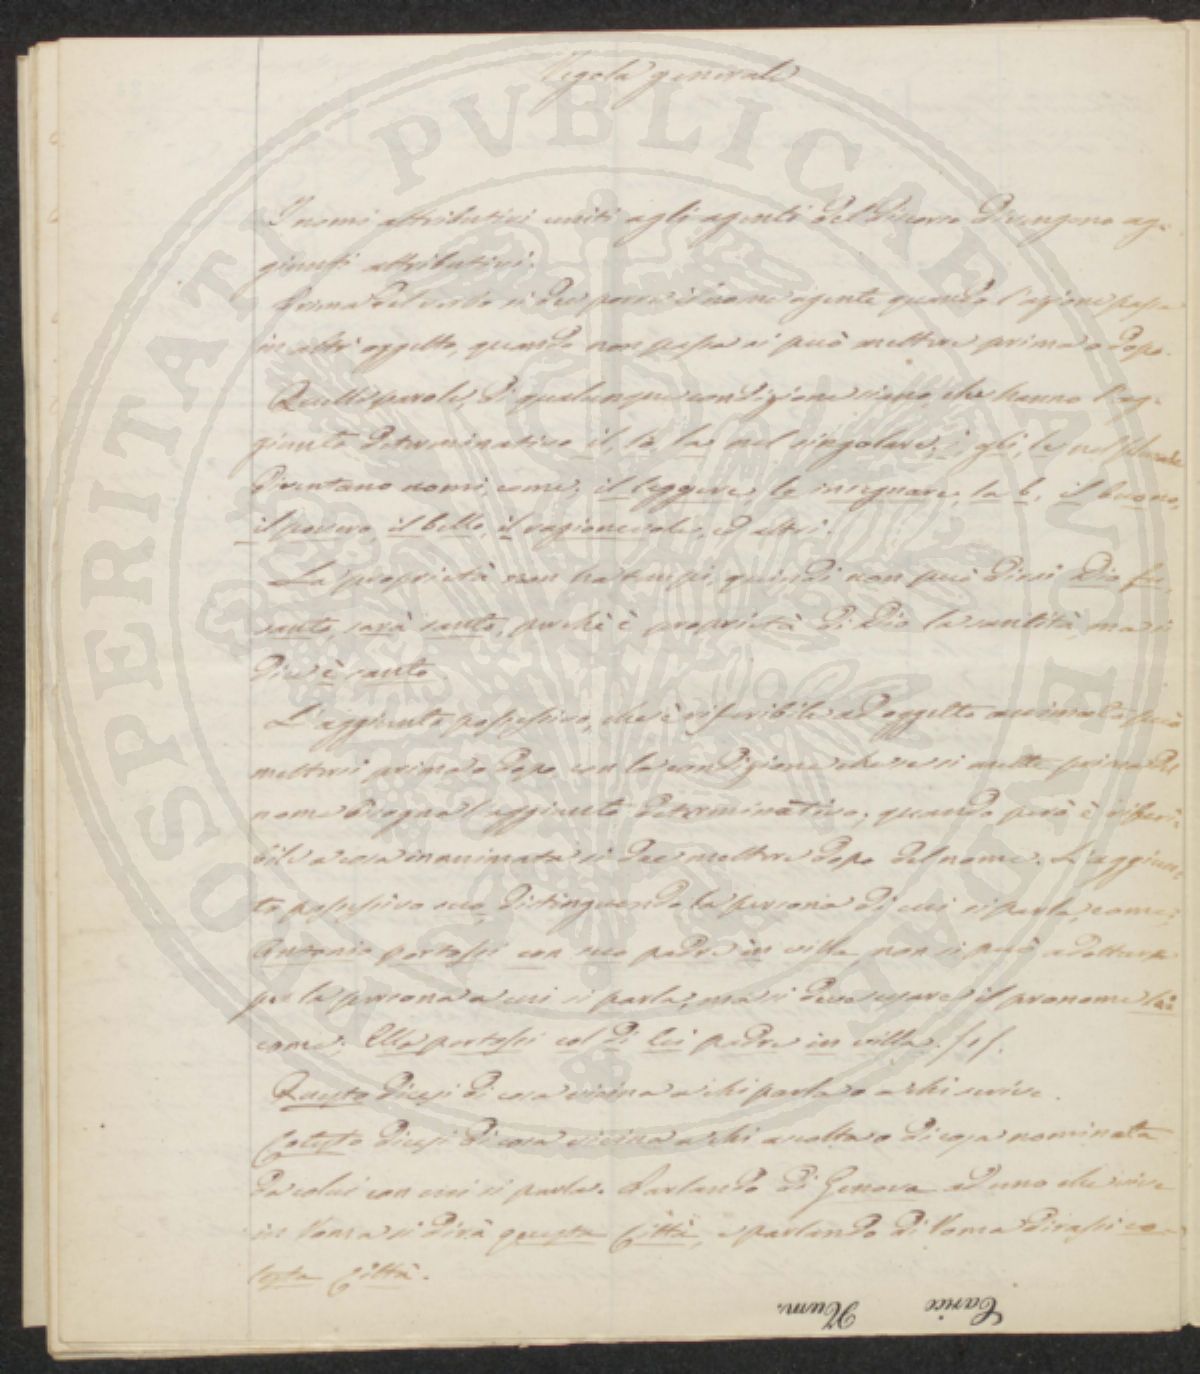 Regola generale
I nomi attributivi uniti agli agenti del discorso divengono ag-
giunti attributivi.
Prima del verbo si dee porre il nome agente quando l'azione passa
in altri oggetto, quando non passa si può mettere prima o dopo.
Quelle parole, di qualunque condizione sieno, che hanno l'ag-
giunto determinativo il, lo, la, nel singolare, i, gli, le nel plurale
diventano nomi, come; il leggere, lo insegnare, la b, il buono,
il povero, il bello, il ragionevole, ed altri.
La proprietà non ha tempi, quindi non può dirsi Dio fu
santo, sarà santo, perchè è proprietà di Dio la santità, ma si
dice è santo.
L'aggiunto possessivo, che è riferibile ad oggetto animato può
mettersi prima o dopo con la condizione che se si mette prima del
nome bisogna l'aggiunto determinativo; quando però è riferi-
bile a cosa inanimata si dee mettere dopo del nome. L'aggiun-
to possessivo suo, distinguendo la persona di cui si parla, come;
Antonio portossi con suo padre in villa, non si può adottare
per la persona a cui si parla; ma si deve usare il pronome lei
come; Ella portossi col di lei padre in villa. /1/.
Questo dicesi di cosa vicina a chi parla o a chi scrive.
Cotesto dicesi di cosa vicina a chi ascolta o di cosa nominata
da colui con cui si parla. Parlando di Genova ad uno che vive
in Roma si dirà questa Città, e parlando di Roma dirassi co-
testa Città.
Carice
Num.
SPERITATI PVBLICAE